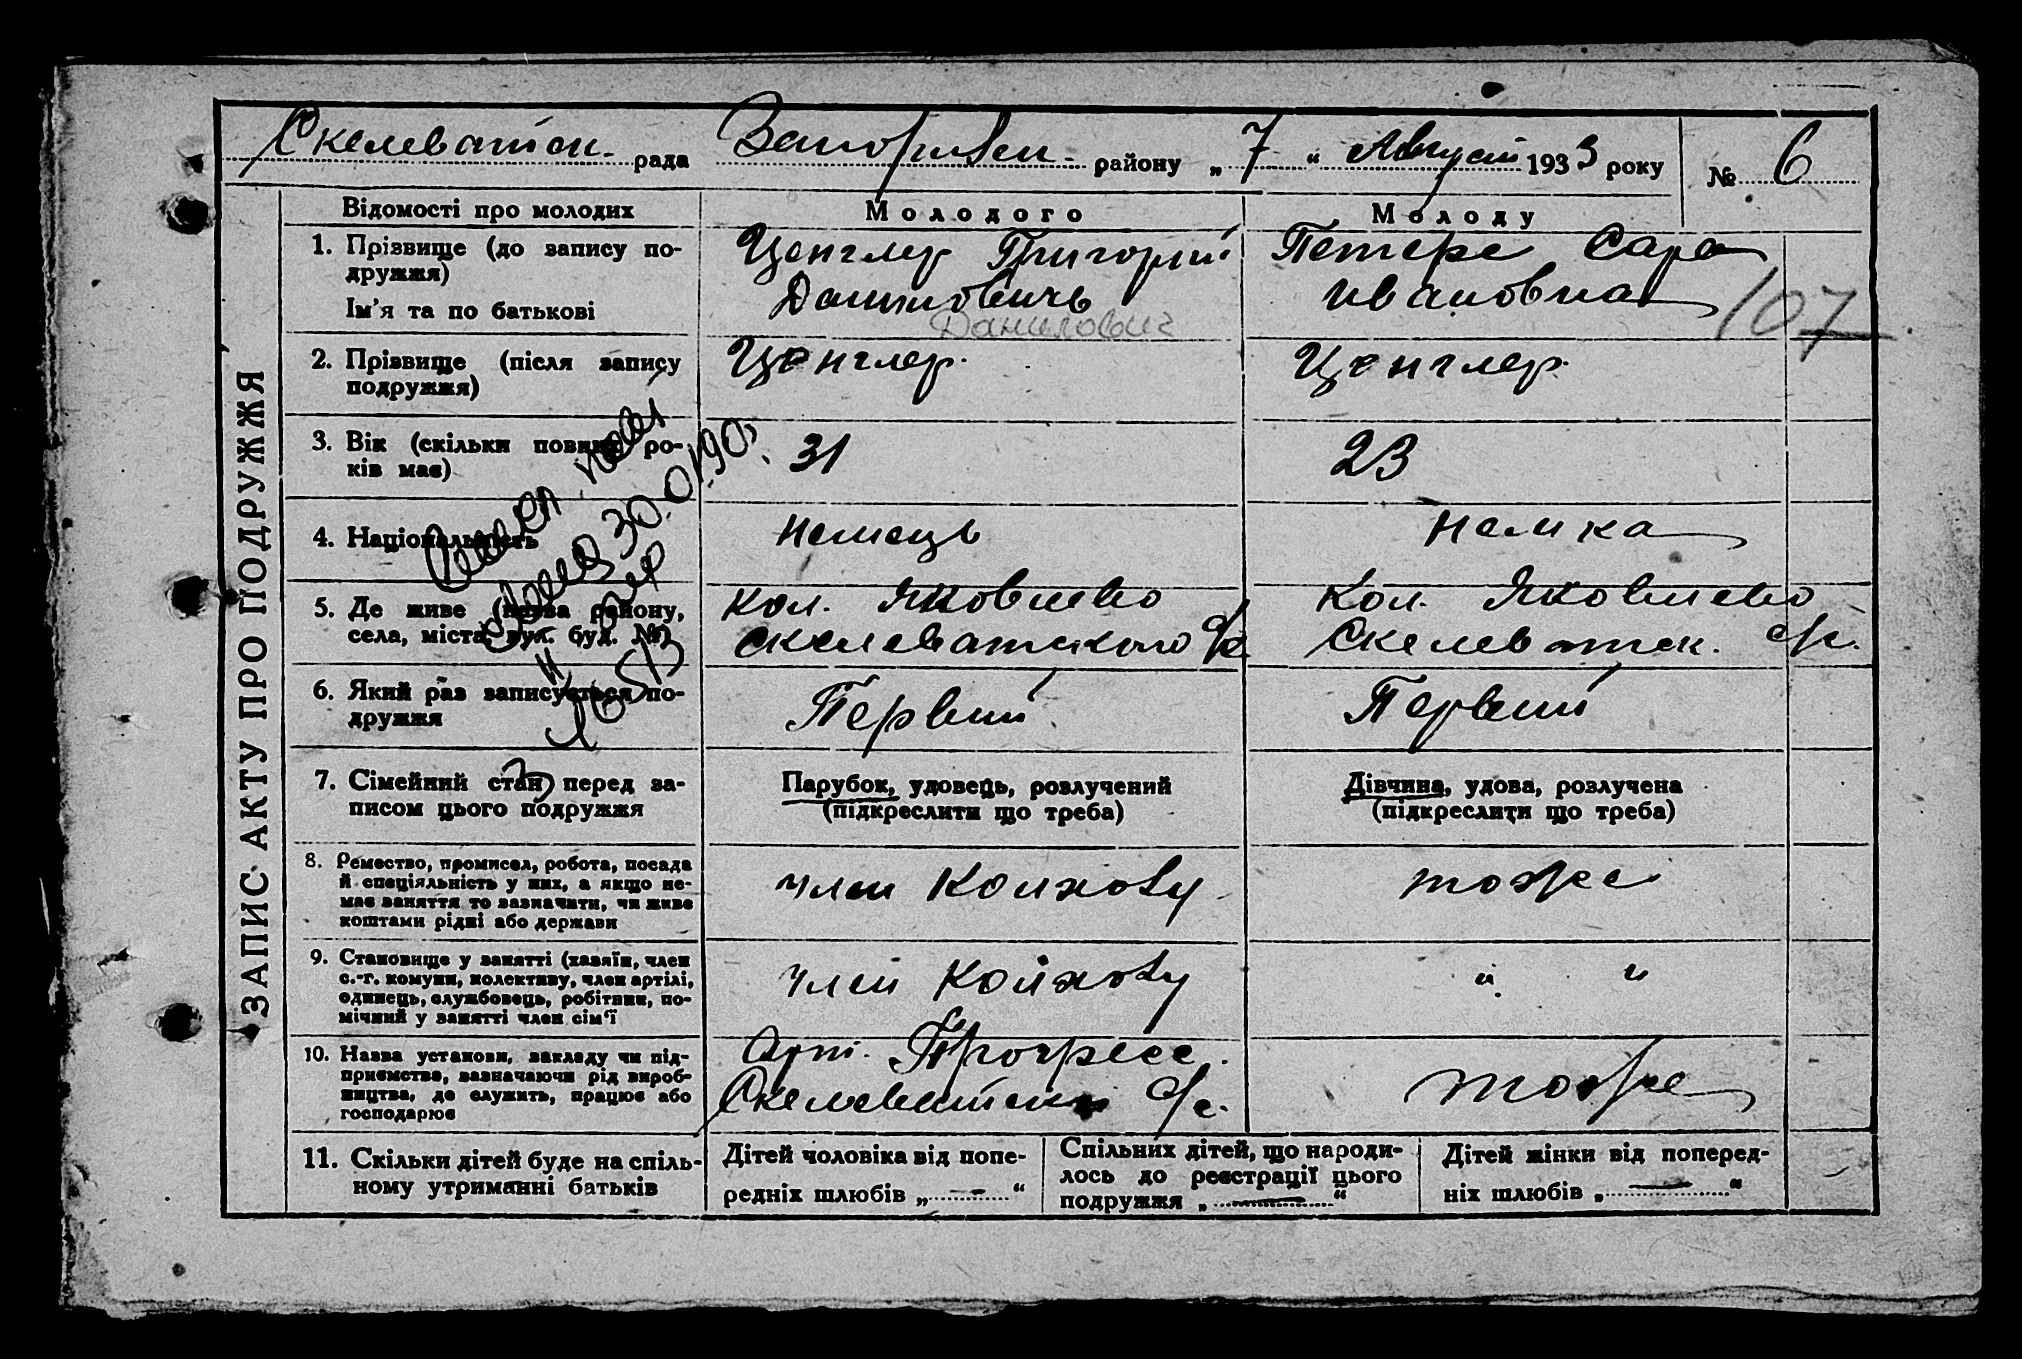 Скелеватск. рада Запорижск. району „7“ Август 1933 року № 6
ЗАПИС АКТУ ПРО ПОДРУЖЖЯ
Відомості про молодих
Молодого
Молоду
1. Прізвище (до запису по-
дружжя)
Ім'я та по батькові
Ценглер Григорий
Данилович
Петерс Сара
Ивановна
107
2. Прізвище (після запису
подружжя)
Ценглер.
Ценглер.
3. Вік (скільки повних ро-
ків має)
31
23
4. Національність
Немець
Немка
5. Де живе (назва району,
села, міста, вул. буд. №)
Кол. Яковлево
Скелеватского с/р
Кол. Яковлево
Скелеватск. с/р.
6. Який раз записується по-
дружжя
Первий
Первий
7. Сімейний стан перед за-
писом цього подружжя
Парубок, удовець, розлучений
(підкреслити що треба)
Дівчина, удова, розлучена
(підкреслити що треба)
8. Ремество, промисел, робота, посада
й спеціяльність у них, а якщо не-
має заняття то зазначити, чи живе
коштами рідні або держави
член Колхозу
тоже
9. Становище у занятті (хазяїн, член
с.-г. комуни, колективу, член артілі,
одинець, службовець, робітник, по-
мічний у занятті член сім'ї
член Колхозу
" "
10. Назва установи, закладу чи під-
приємства, зазначаючи рід вироб-
ництва, де служить, працює або
господарює
Арт. Прогресс.
Скелеватский с/р.
тоже
11. Скільки дітей буде на спіль-
ному утриманні батьків
Дітей чоловіка від попе-
редніх шлюбів „ — “
Спільних дітей, що народи-
лось до реєстрації цього
подружжя „ — “
Дітей жінки від поперед-
ніх шлюбів „ — “
Данилович
30.01.90